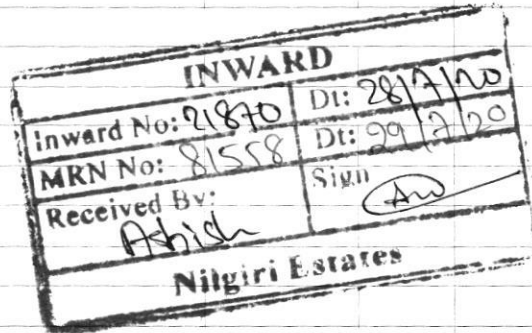 INWARD
Inward No: 21870 Dt: 28/7/20
MRN No: 81558 Dt: 29/7/20
Received By: Sign
Ashish
Nilgiri Estates